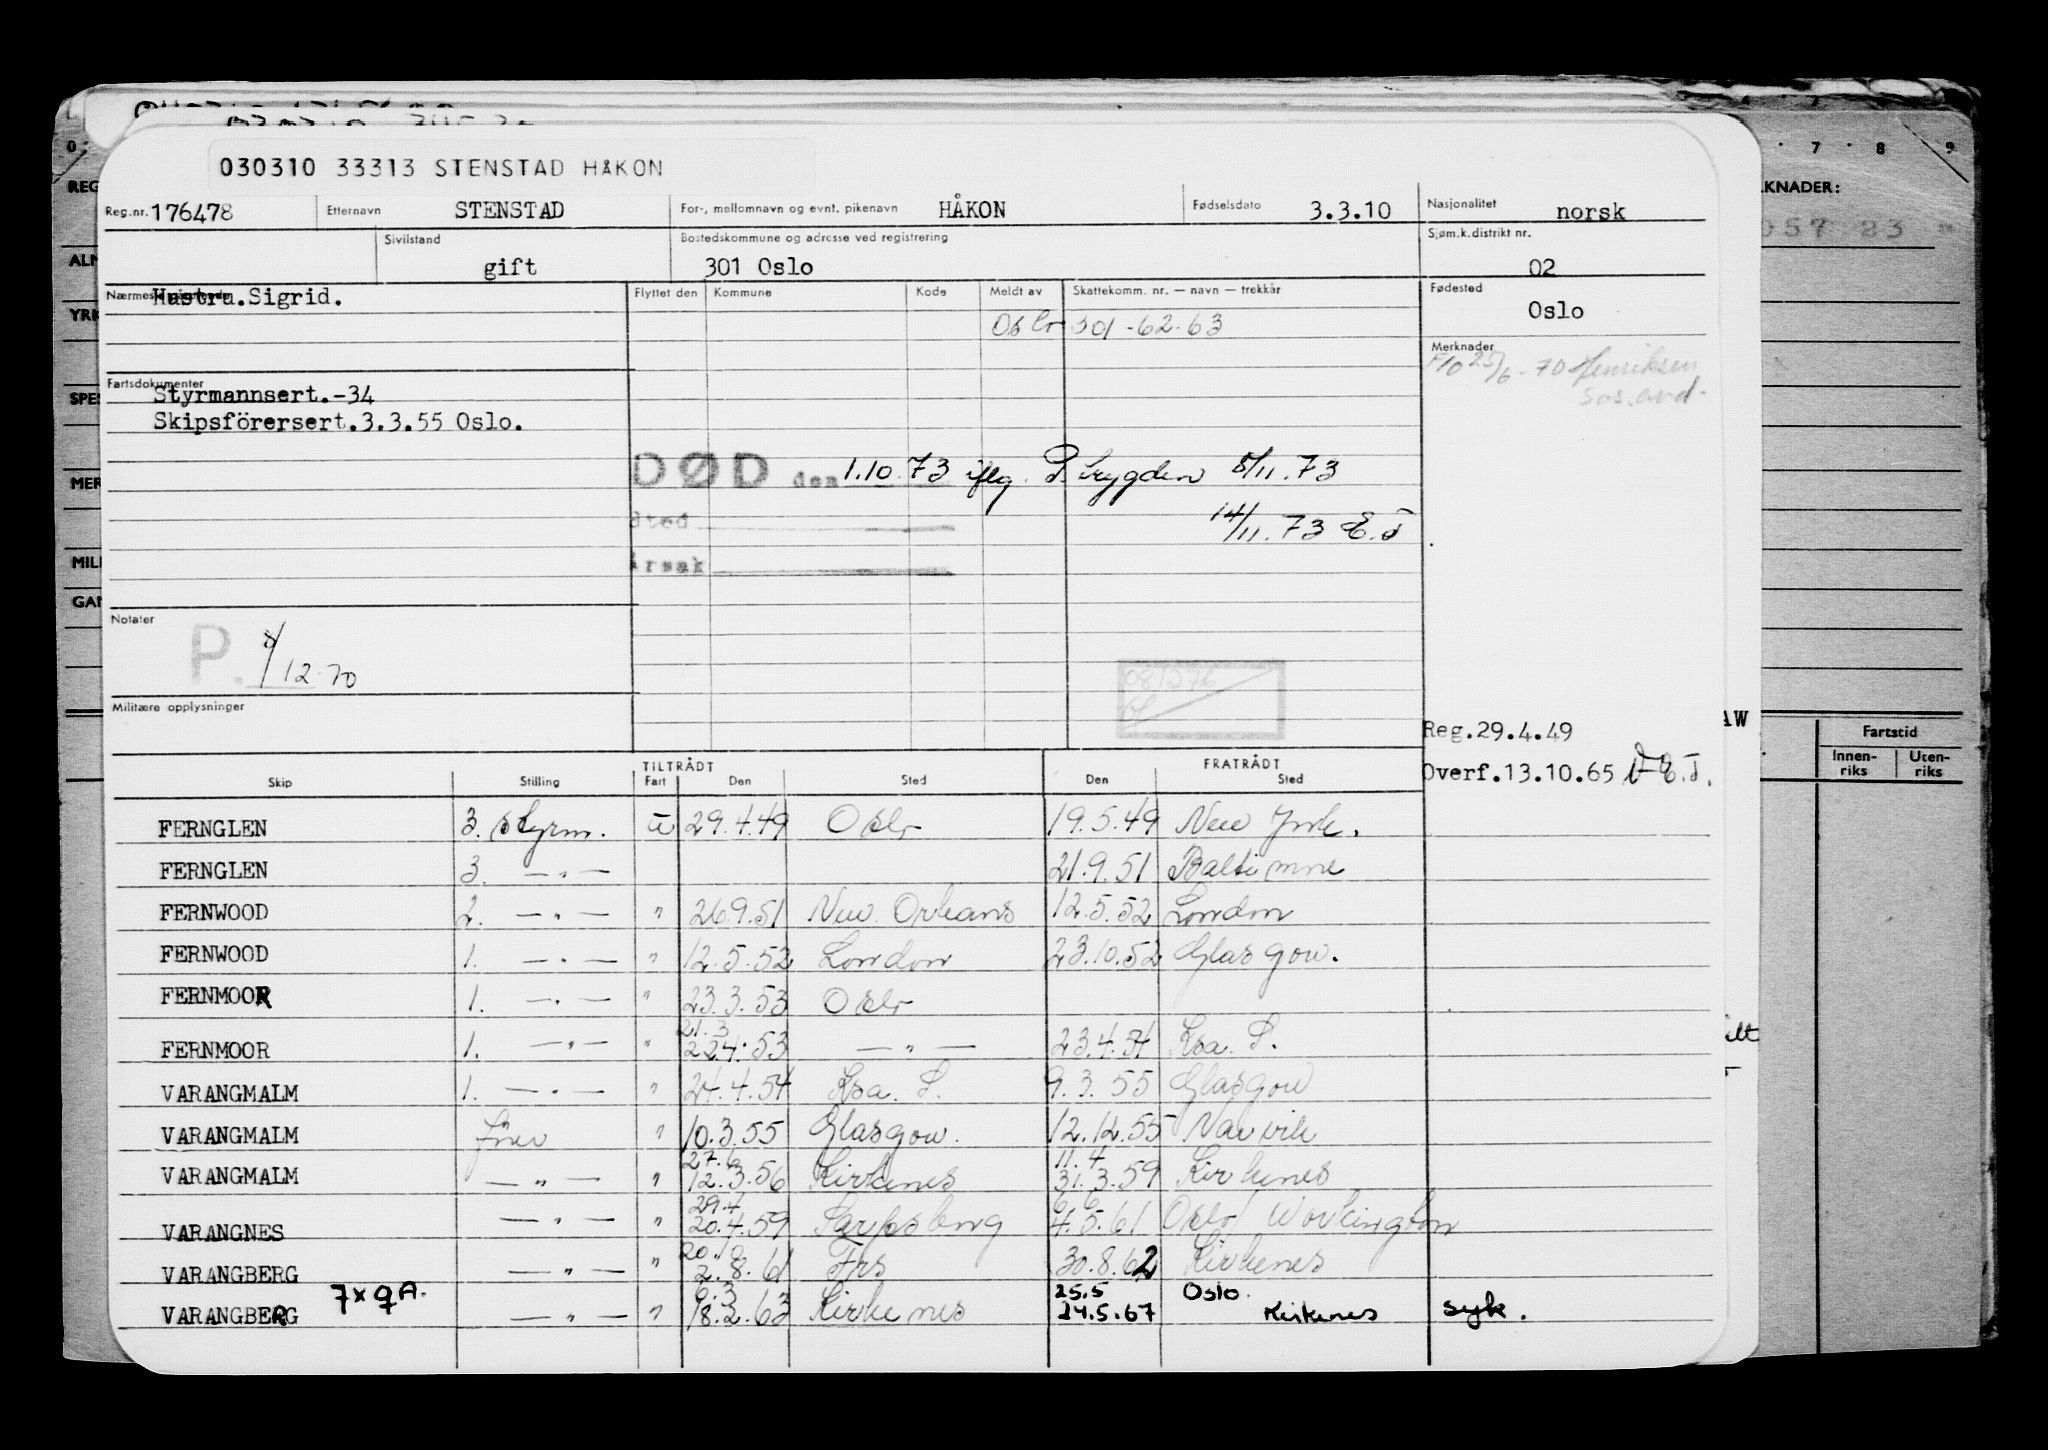 030310 33313 STENSTAD HÅKON
Reg.nr. 176478 Etternavn STENSTAD For-, mellomnavn og evnt. pikenavn HÅKON Fødselsdato 3.3.10 Nasjonalitet norsk
Sivilstand gift Bostedskommune og adresse ved registrering 301 Oslo Sjøm.k.distrikt nr. 02
Hustru.Sigrid. Flyttet den Kommune Kode Meldt av Skattekomm. nr. — navn — trekkår Fødested Oslo
Oslo 301 -62-63
Merknader
25/6-70 Henriksen
Sos.avd.
Fartsdokumenter
Styrmannsert.-34
Skipsförersert.3.3.55 Oslo.
DØD den 1.10.73 iflg. P.trygden 5/11.73
Sted 14/11.73 E.J
Årsak
Notater
P. /12-70
Militære opplysninger
Reg.29.4.49
Overf.13.10.65 E.J.
TILTRÅDT FRATRÅDT
Skip Stilling Fart Den Sted Den Sted
FERNGLEN 3. Styrm. u 29.4.49 Oslo 19.5.49 New York.
FERNGLEN 3. —"— 21.9.51 Baltimore
FERNWOOD 2. —"— " 26.9.51 New Orleans 12.5.52 London
FERNWOOD 1. —"— " 12.5.52 London 23.10.52 Glasgow.
FERNMOOR 1. —"— " 23.3.53 Oslo
21.3
FERNMOOR 1. —"— " 22.4.53 —"— 23.4.54 Koa. S.
VARANGMALM 1. —"— " 24.4.54 Koa. S. 9.3.55 Glasgow
VARANGMALM Fører " 10.3.55 Glasgow. 12.12.55 Narvik
11.4
VARANGMALM —"— " 12.3.56 Kirkenes 31.3.59 Kirkenes
29.4 6.6
VARANGNES —"— " 20.4.59 Sarpsborg 4.5.61 Oslo/ Workington
VARANGBERG —"— " 2.8.61 Frs 30.8.62 Kirkenes
7x9A. 6.3 25.5 Oslo.
VARANGBERG —"— " 18.2.63 Kirkenes 24.5.67 Kirkenes syk.
7 8 9
KNADER:
Fartstid
Innen-riks Uten-riks
REG
YRK
SPES
MER
MILI